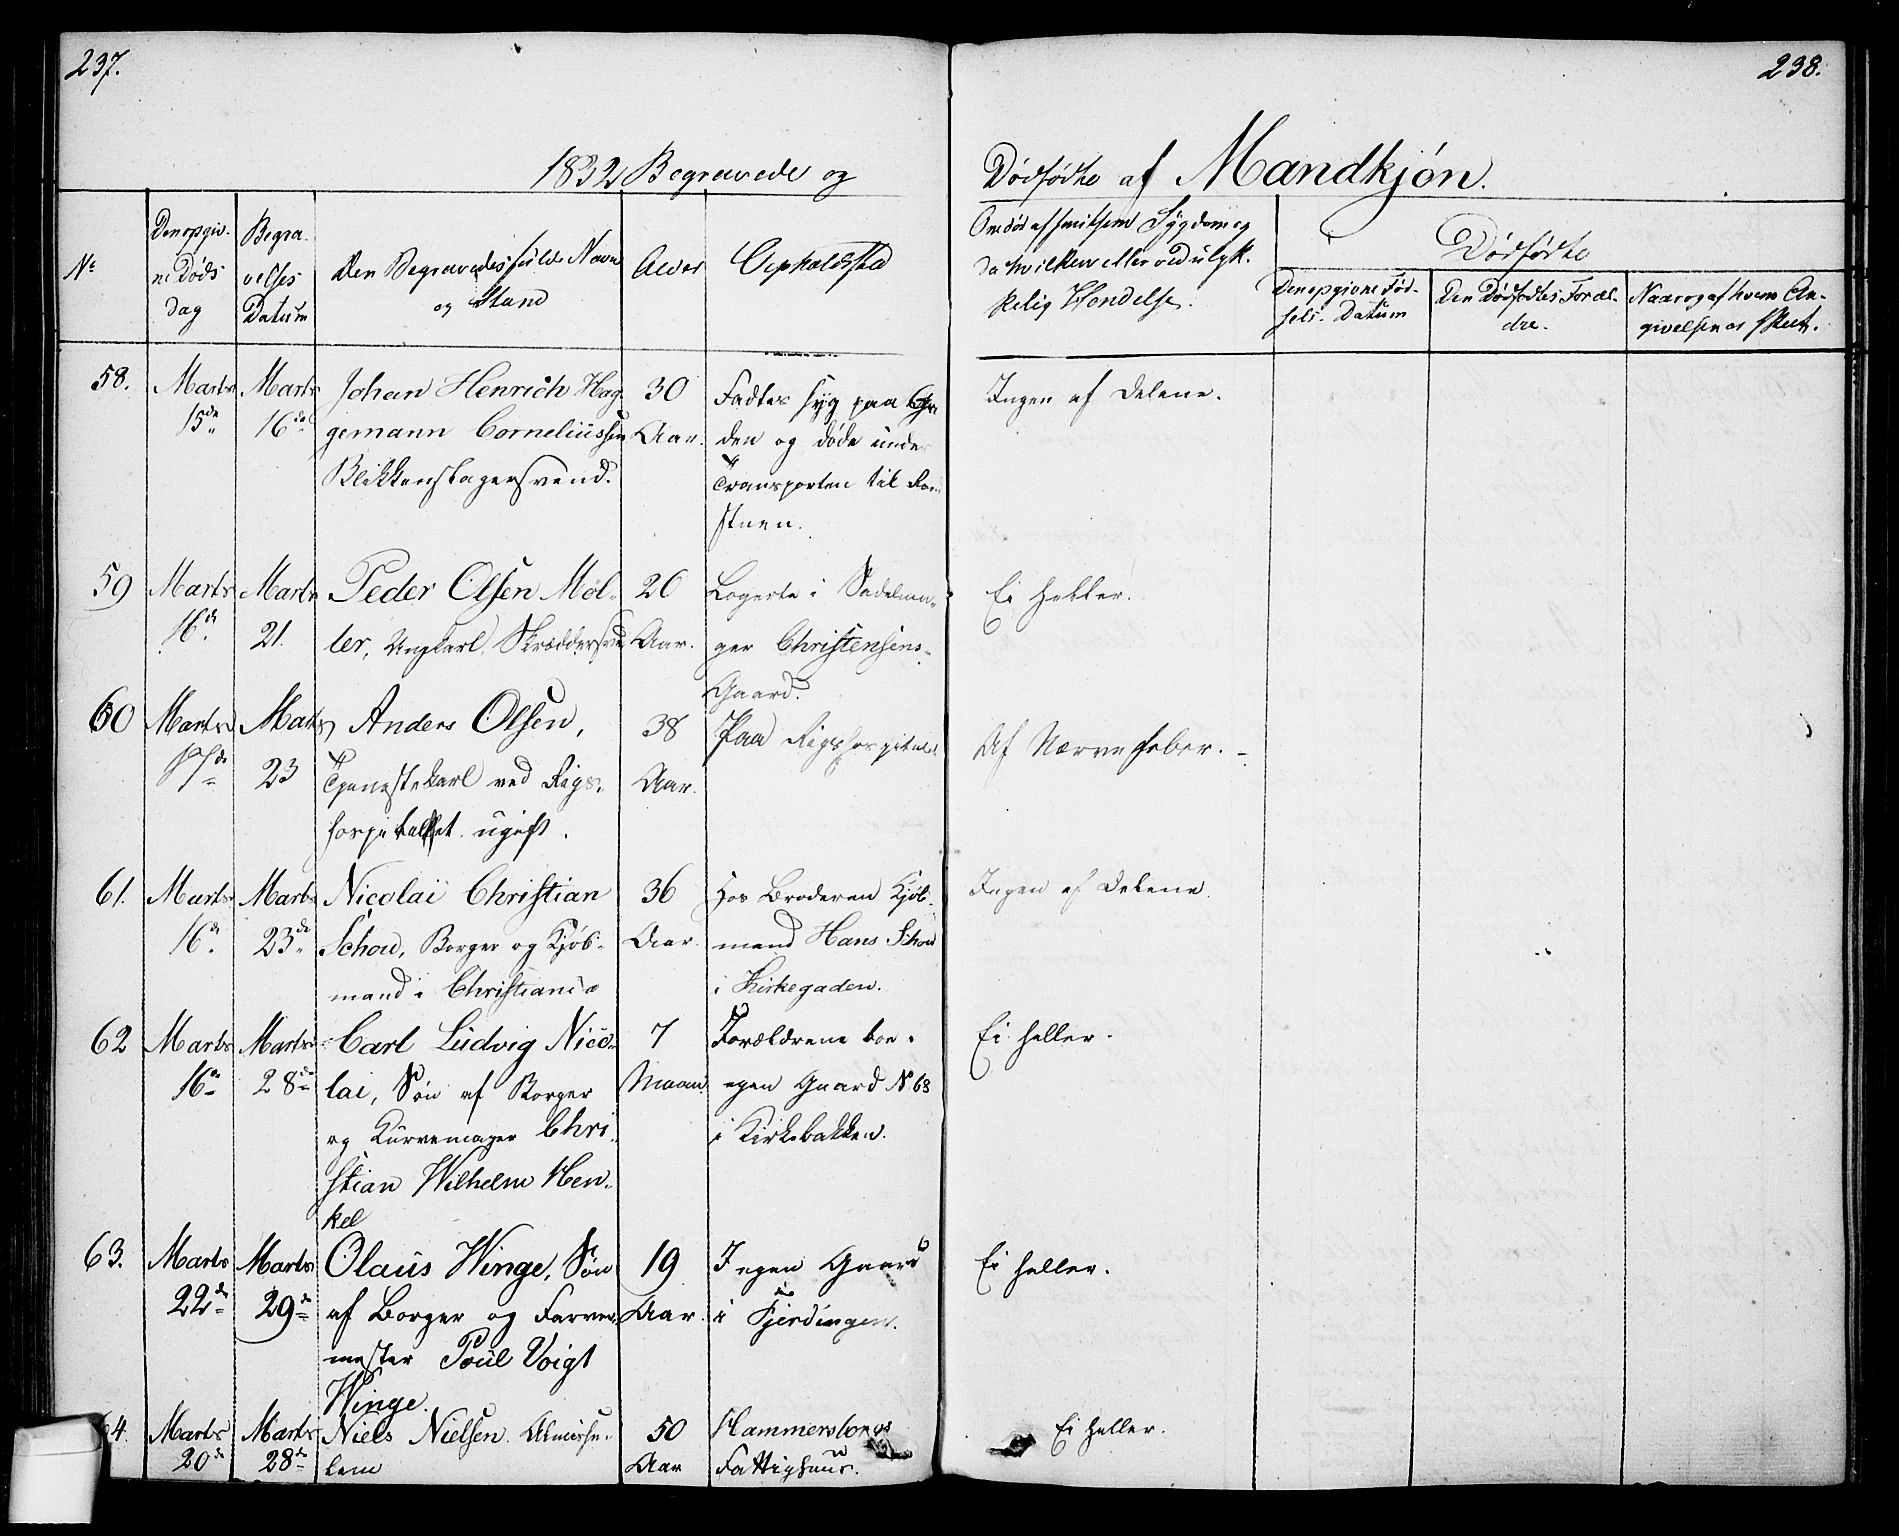 237.
238.
1832 Begravede og Dødfødte af Mandkjón.
No
Den opgiv-
ne Døds
dag
Begra-
velses
Datum
Den Begravedes fulde Navn
og Stand
Alder
Opholdssted
Om død af smitsom Sÿgdom og
da hvilken eller ved ulyk-
kelig Hendelse.
Dødfødte
Den opgivne Fød-
sels-Datum
Den Dødfødtes Foræl-
dre.
Naar og af hvem An-
givelsen er skeet.
58.
Marts
15de
Marts
16de
Johan Henrich Hag-
gemann Corneliussen
Blikkenslagersvend.
30
Aar.
Fadtes syg paa
den og døde under
Transporten til
stuen.
Ingen af Delene.
59
Marts
16de
Marts
21.
Peder Olsen Møl-
ler, Ungkarl. Skræddersvend
26
Aar.
Logerte i Sadelma-
ger Christensens-
Gaard.
Ei heller.
60
Marts
17de
Marts
23
Anders Olsen,
Tjenestekarl ved Rigs-
hospitalet ugift.
38
Aar.
Paa Rigshospitalet
Af Nervefeber. -
61.
Marts
16de
Marts
23de
Nicolaï Christian
Schou, Borger og Kjøb-
mand i Christiania
36
Aar.
Hos Broderen Kjøb-
mand Hans Schou
i Kirkegaden.
Ingen af Delene.
62
Marts
16de
Marts
28de
Carl Ludvig Nico-
lai, Søn af Borger
og Kurvemager Chri-
stian Wilhelm Hen-
kel
7
Maan.
Forældrene boe i
egen Gaard N. 68
i Kirkebakken.
Ei heller.
63.
Marts
22de
Marts
29de
Olaus Winge, Søn
af Borger og Farver-
mester Poul Voigt
Winge.
19
Aar.
I egen Gaard
i Fjerdingen.
Ei heller.
64.
Marts
20de
Marts
28de
Niels Nielsen. Almisse-
lem
50
Aar
Hammersborgs
Fattighuus.
Ei heller.